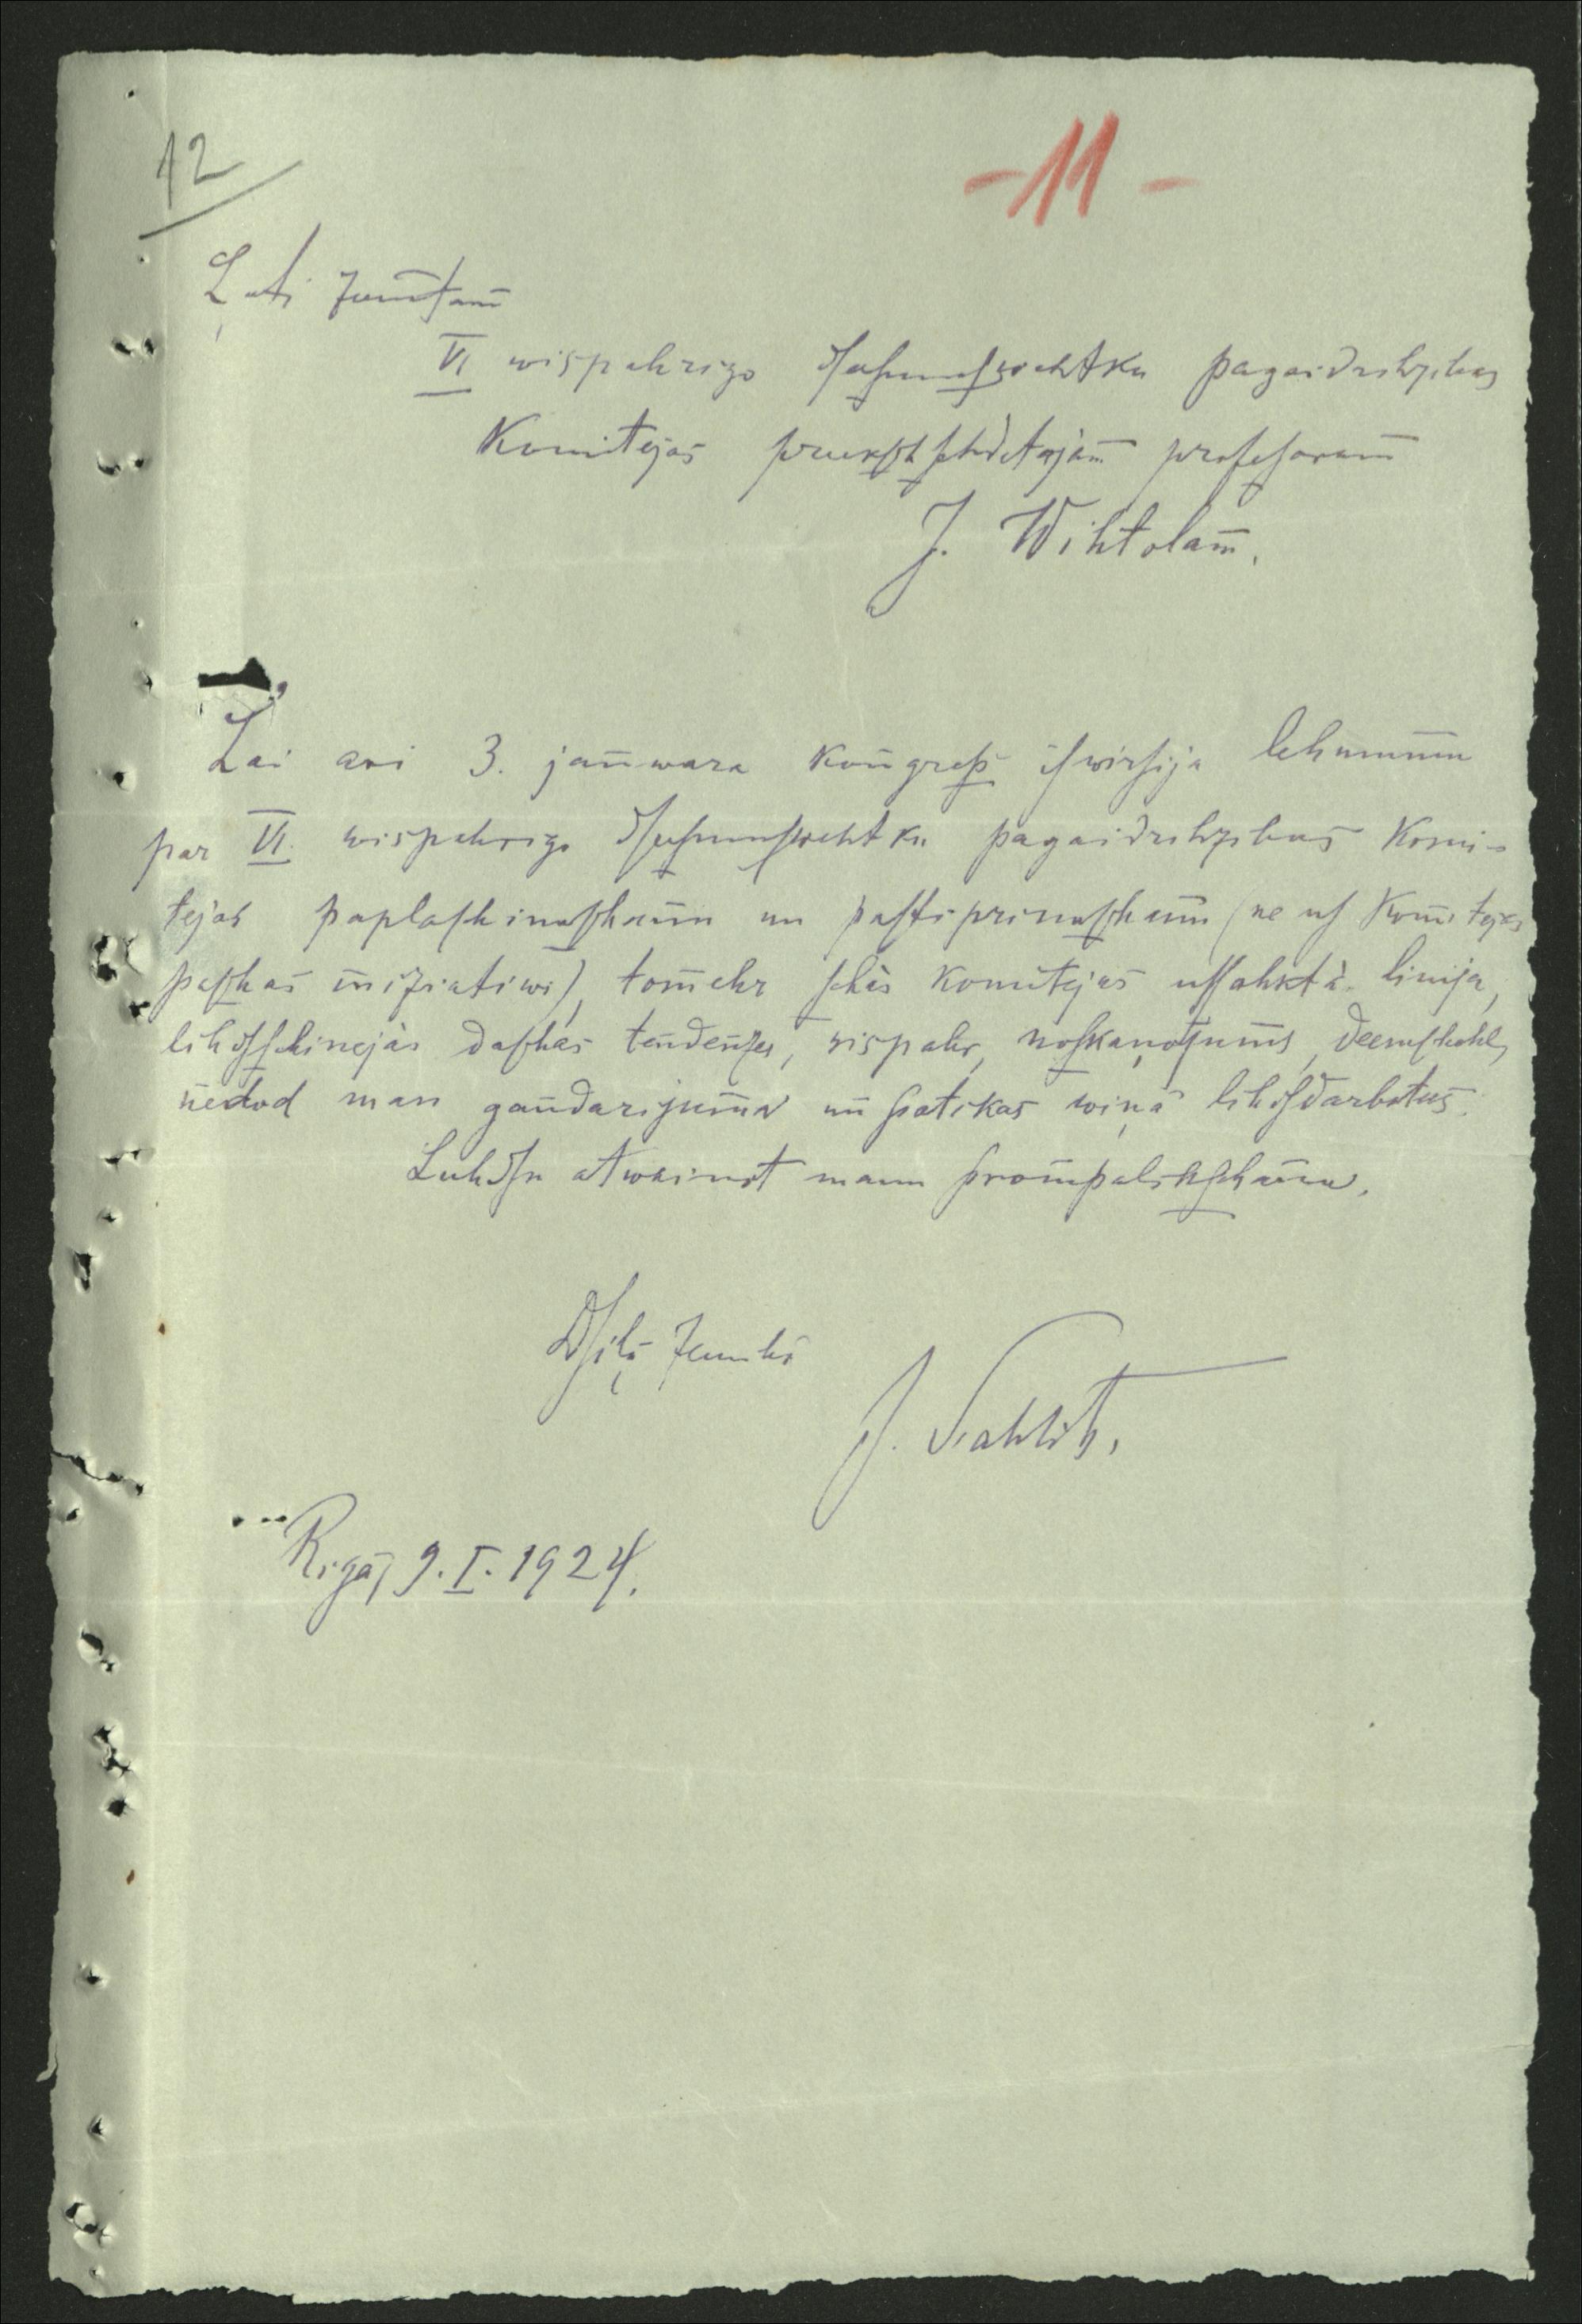 12
-11-
Ļoti zeenitam
VI wispahrigo dseesmuswehtku pagaidrihzibas
Komitejas preekschsehdetajam profesoram
J. Wihtolam.
Lai ari 3. janwara kongress iswirsija lehmumu
par VI wispahrigo dseesmuswehtku pagaidrihzibas Komi-
tejas paplaschinaschanu un pastiprinaschanu (ne us Komitejas
paschas iniziatiwi), tomehr schàs komitejas ussahktà linija,
lihdsschinejàs daschas tendenzes, wispahr, noskaņojums, deemschehl,
nedod man gandarijuma un patikas wiņā lihdsdarbotees.
Luhdsu atwainot manu prompalikschanu.
Dsiļā zeenibā
J. Sahlits.
Rigā, 9. I. 1924.